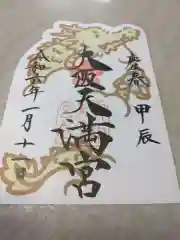 慶春 甲辰
天満宮
令和六年一月十一日